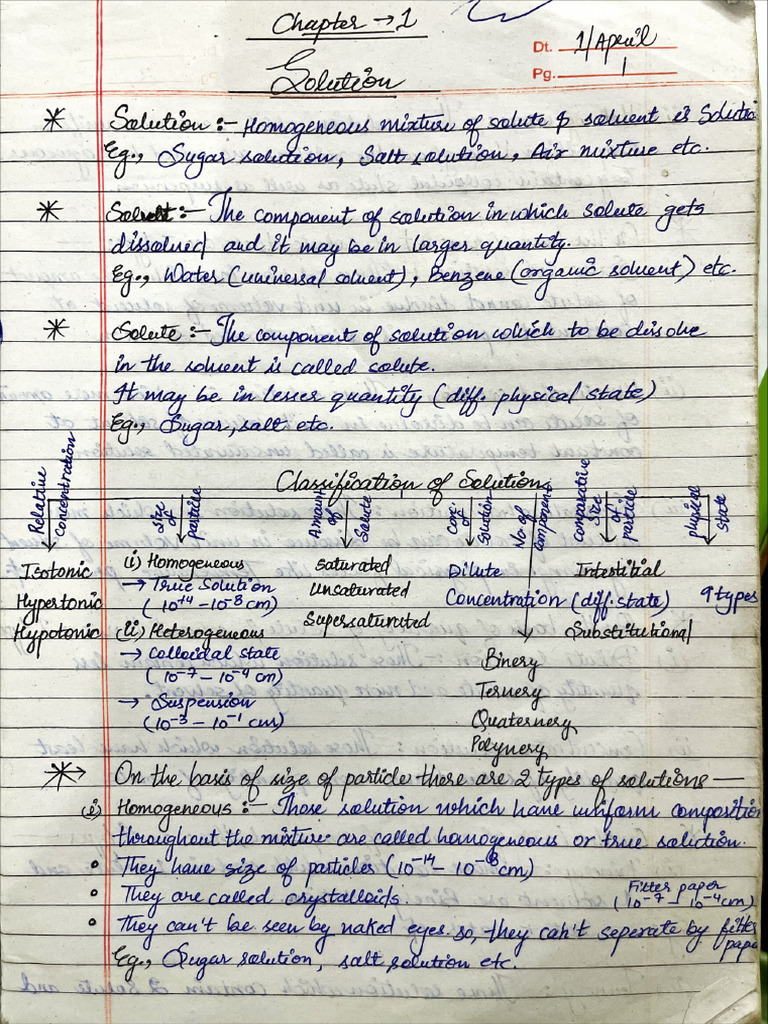 Chapter → 1
Dt. 1/April
Pg. 1
Solution
* Solution :- Homogeneous mixture of solute & solvent is Solutio
Eg., Sugar solution, Salt solution, Air mixture etc.
* Solvent :- The component of solution in which solute gets
dissolved and it may be in larger quantity.
Eg., Water (universal solvent), Benzene (organic solvent) etc.
* Solute :- The component of solution which to be dissolve
in the solvent is called solute.
It may be in lesser quantity (diff. physical state)
Eg., Sugar, salt etc.
Classification of Solution
Relative Concentration
Size of particle
Amount of Solute
Conc. of Solution
No. of component
comparative Size of particle
physical state
Isotonic
Hypertonic
Hypotonic
(i) Homogeneous
→ True Solution
(10+4 - 10-8 cm)
(ii) Heterogeneous
→ Colloidal state
(10-7 - 10-4 cm)
→ Suspension
(10-3 - 10-1 cm)
Saturated
Unsaturated
Supersaturated
Dilute
Concentration
Binery
Ternery
Quaternery
Polynery
Interstitial
(diff. state)
Substitutional
9 types
*→ On the basis of size of particle there are 2 types of solutions —
(i) Homogeneous :- Those solution which have uniform compositio
throughout the mixture are called homogeneous or true solution.
• They have size of particles (10-14 - 10-8 cm)
• They are called crystalloids.
Fitter paper
(10-7 - 10-4 cm)
• They can't be seen by naked eyes so, they can't seperate by fitter
pape
Eg., Sugar solution, salt solution etc.